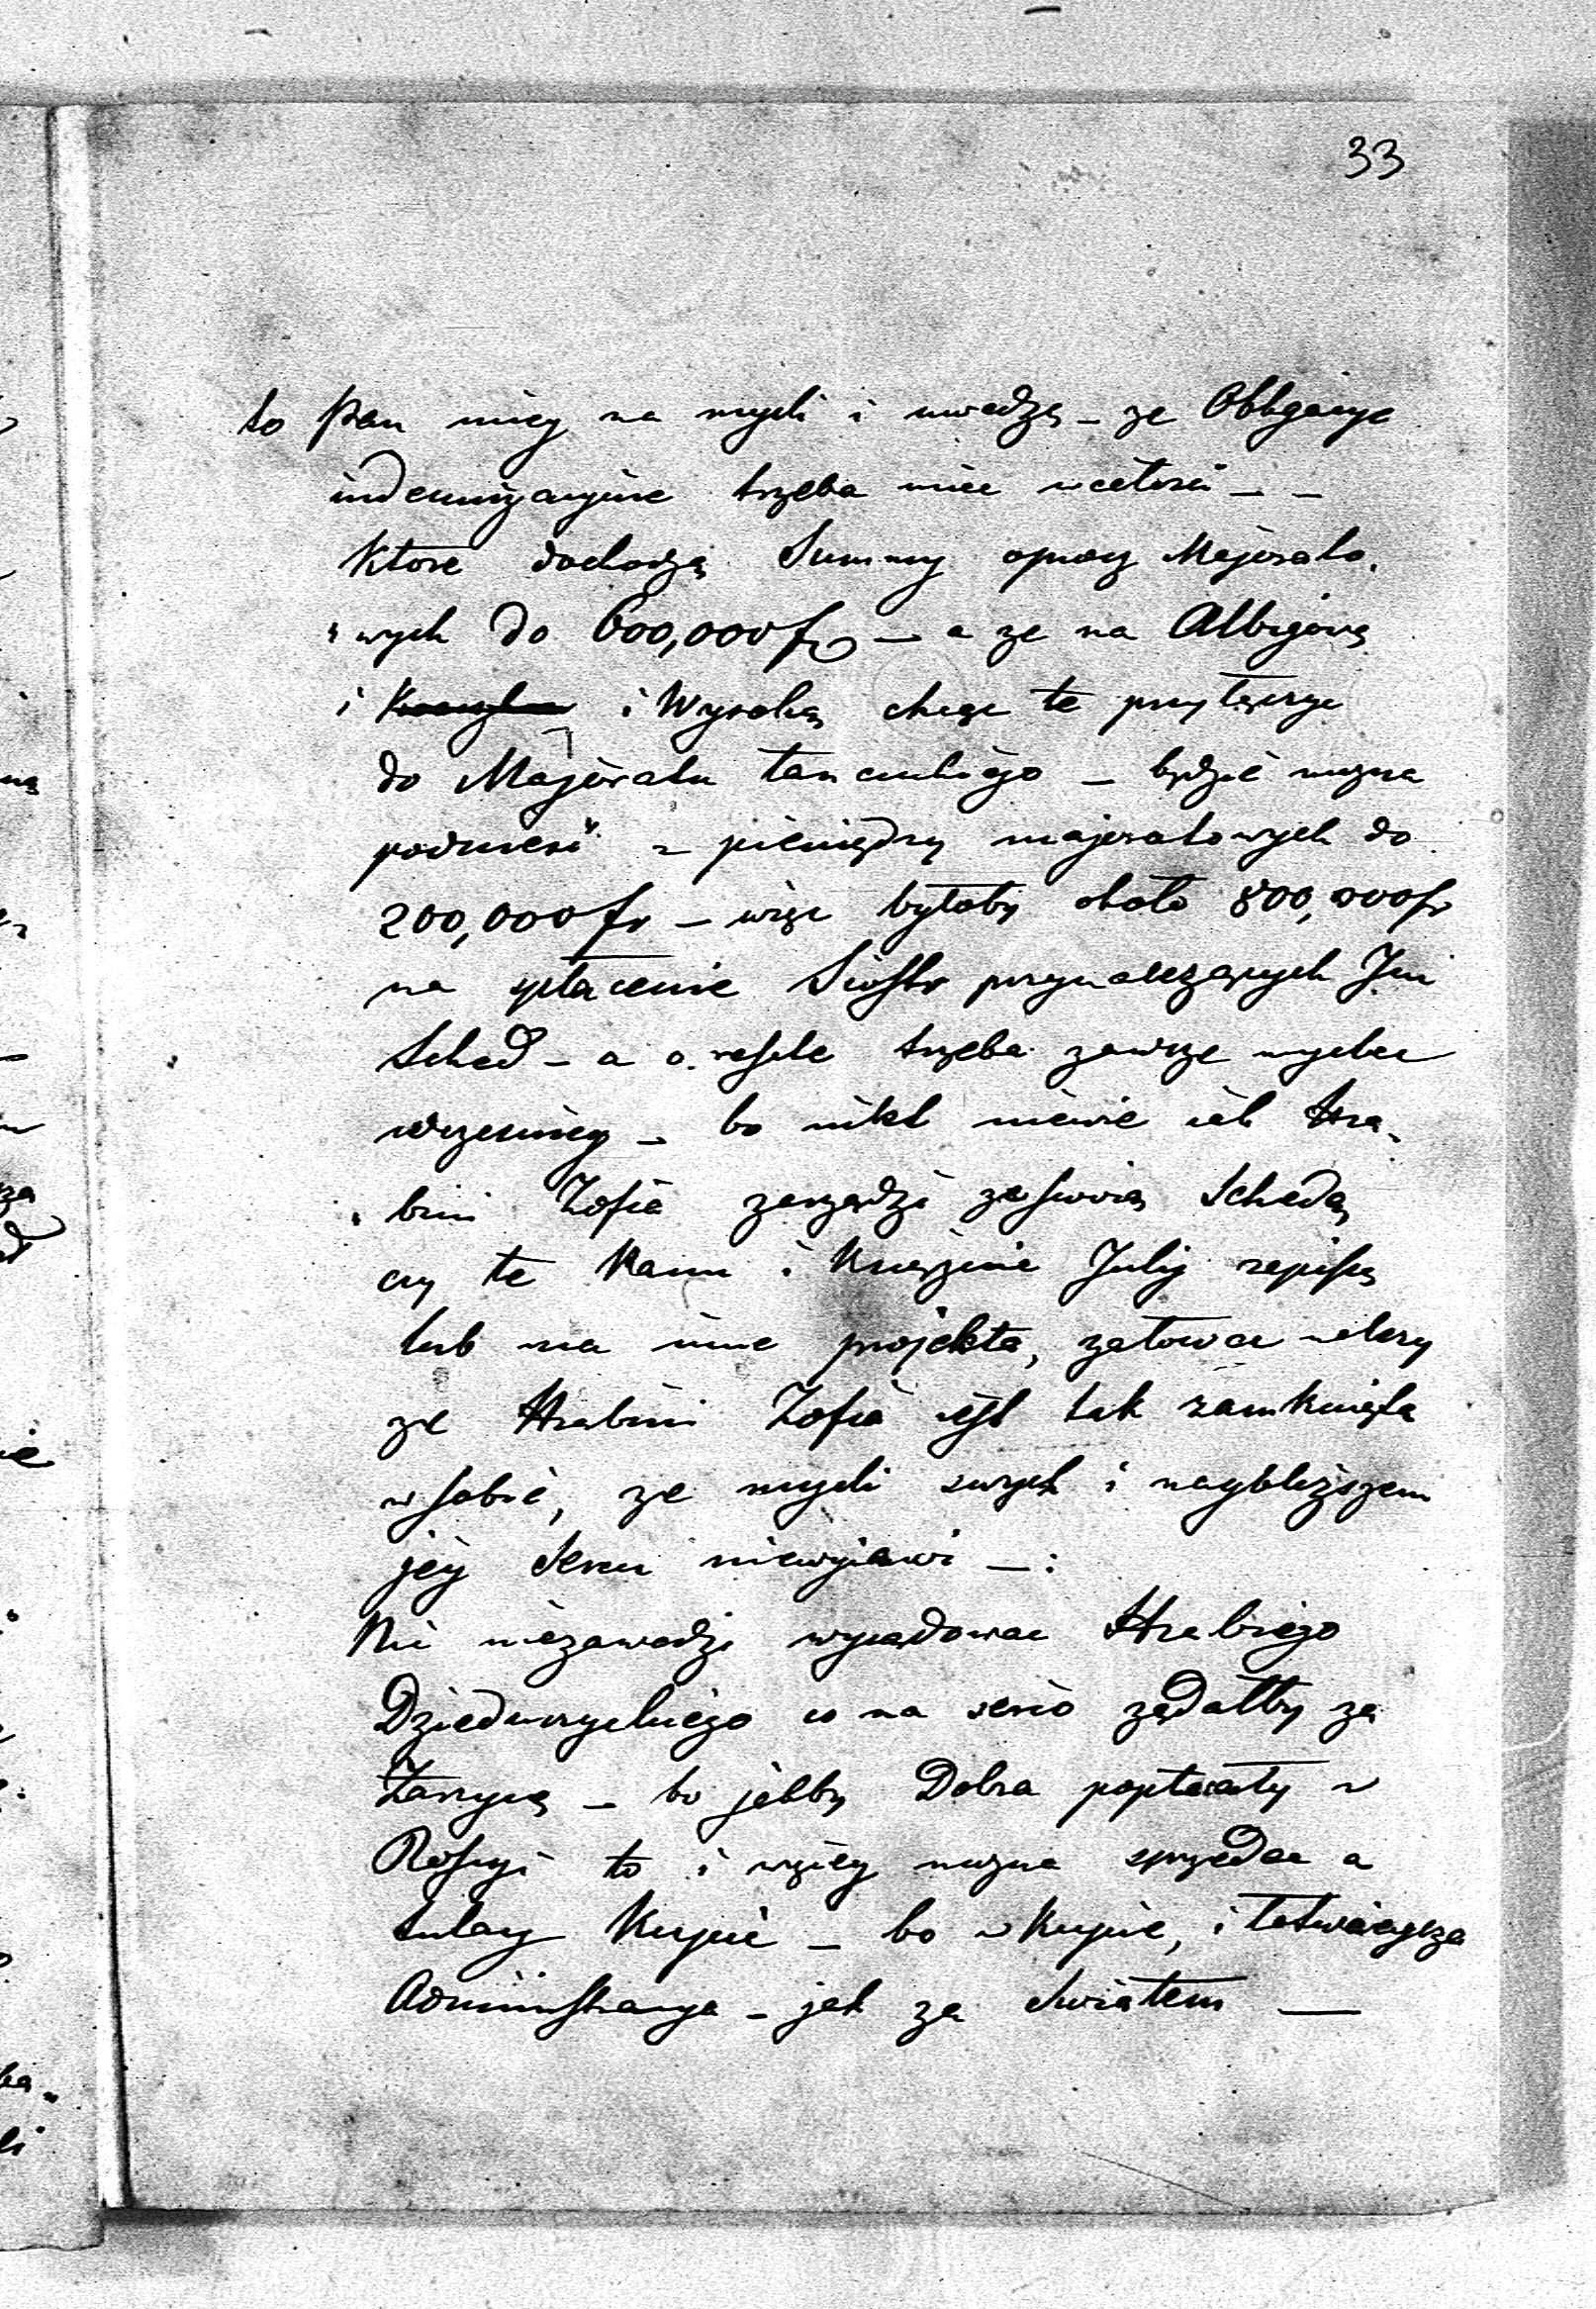 33
to Pan miey na mysli i uwadzę – ze Obligacye
indemnizacyine trzeba miec w całosci – –
Ktore dochodzą Summy oprocz Majorato„
„wych do 600,000 fr – a ze na Albigową
i i Wysoką chcąc te przyłączyc
do Majoratu łancuckiego – będzie mozna
podniesć z pieniędzy majoratowych do
200,000 fr – więc byłoby około 800,000 fr
na spłacenie Siostr przynalezących Jm
Sched – a o reszte trzeba zawsze myslec
wczesniey – bo nikt niewie jak Hra„
„bini Zofia zarządzi zeswoią Schedą
czy te Panu i Xięznie Julij zapiszą
lub na inne projekta, załowac nalezy
ze Hrabini Zofia iest tak zamknięta
w sobie, ze mysli swych i naybliższem
jey Sercu niewyiawi – :
Nic niezawadzi wyiądowac Hrabiego
Dzieduszyckiego co na serio ządałby za
Zarzyce – bo jakby Dobra popłacały w
Rossyi to i więcy mozna sprzedac a
tutay Kupic – bo w Kupie, i łatwieysza
Administracya – jak za Swiatem —